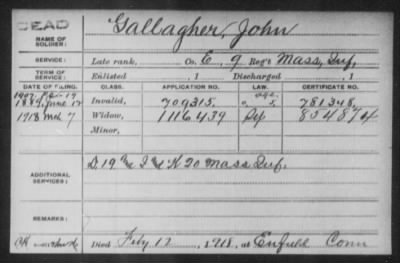 DEAD
NAME OF SOLDIER: Gallagher, John
SERVICE: Late rank, Co. E, 9 Reg't Mass. Inf.
TERM OF SERVICE: Enlisted , 1 Discharged , 1
DATE OF FILING. CLASS. APPLICATION NO. LAW. CERTIFICATE NO.
1907,
1889, June 12 Invalid, 709315. 781348,
1918 Mch 7 Widow, 1116439 854874
Minor,
ADDITIONAL SERVICES: D. 19 & I & K 20 Mass Inf.
REMARKS:
Died Feby 12, 1918, at Enfield Conn